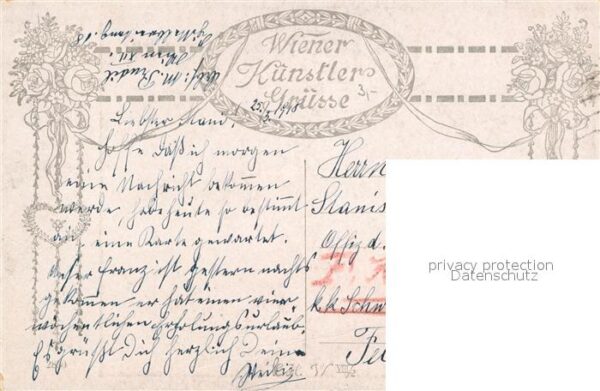 Wiener
Künstler
Grüsse
3,-
Abs: M.
Wien XII.
25./5. 1918
Liebster Stani!
Hoffe daß ich morgen
eine Nachricht bekommen
werde, habe heute so bestimmt
auf eine Karte gewartet.
Unser Franz ist gestern nachts
gekommen er hat einen vier
wöchentlichen Erholungsurlaub.
Es grüßt Dich herzlich Deine
Herrn
Stanis
Offiz d.
k.k. Schw
Fe
privacy protection
Datenschutz